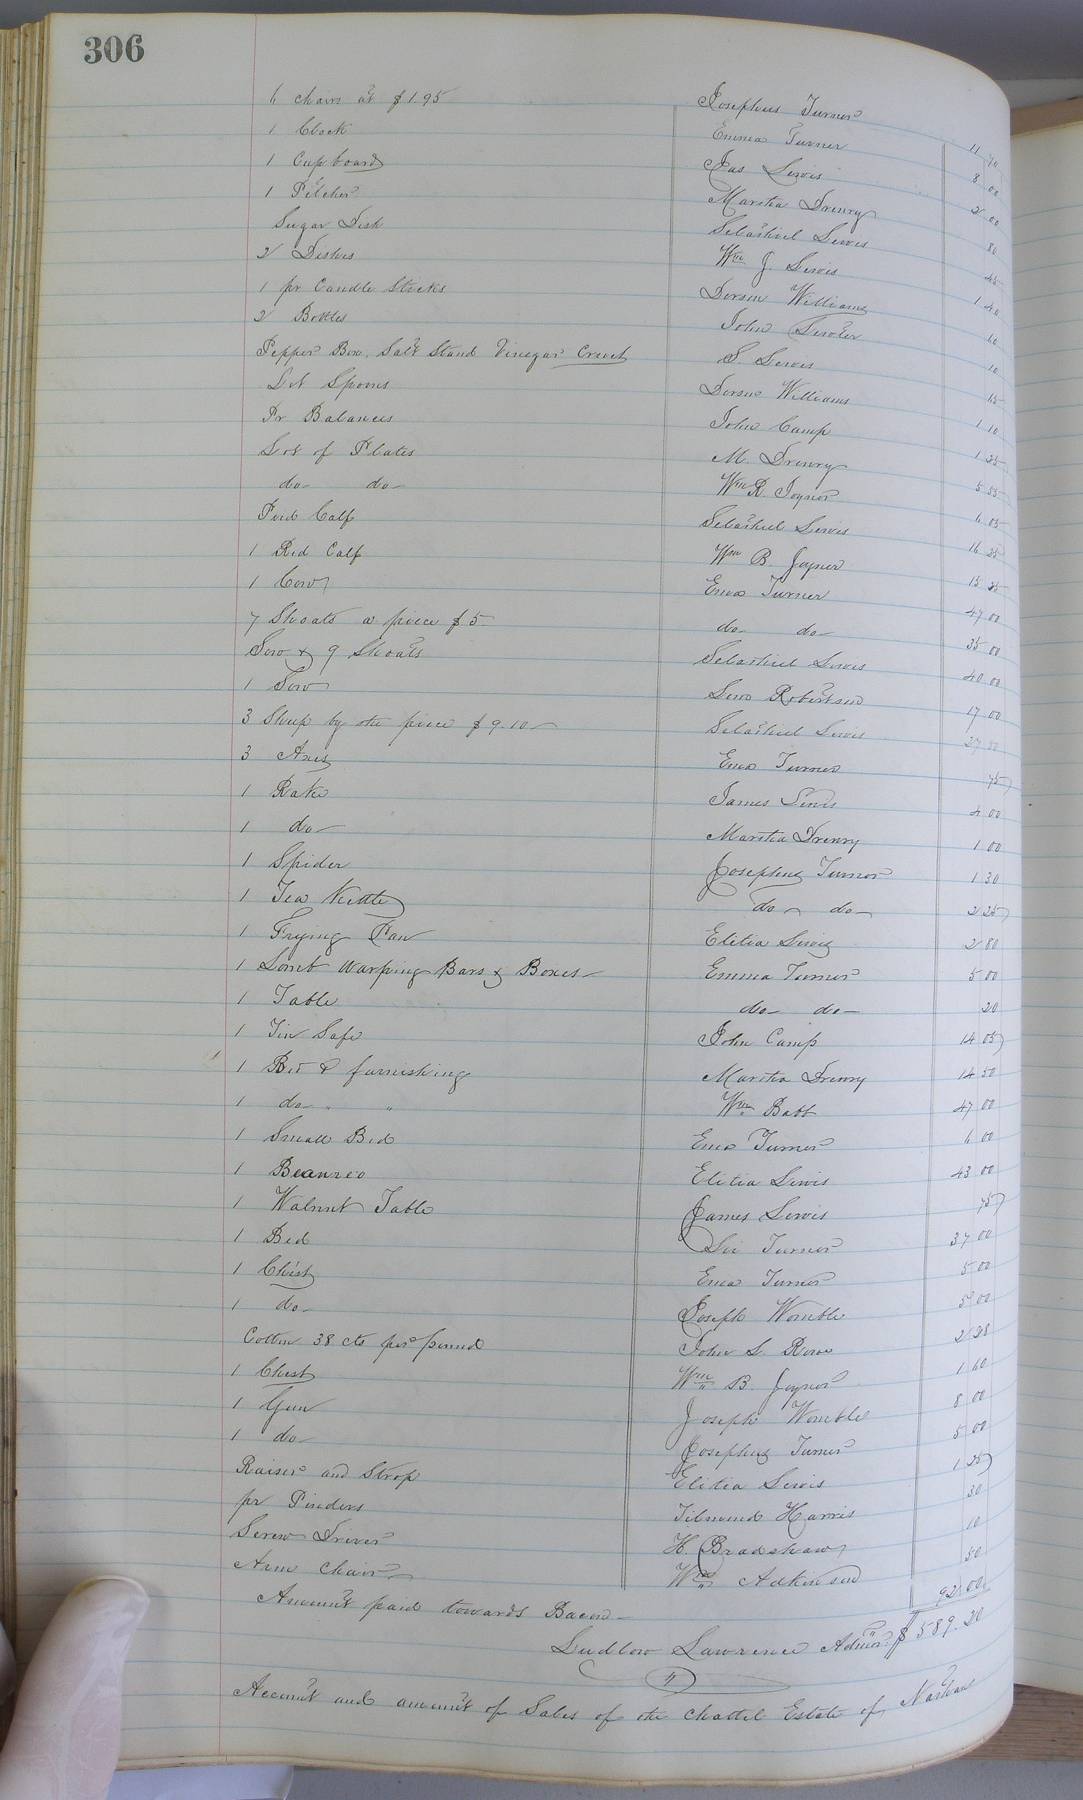 306
6 Chairs at $1.95 Josephus Turner 11 70
1 Clock Emma Turner 8 00
1 Cupboard Jas Lewis 2 00
1 Pitcher Martha Drewry 80
Sugar Dish Selathiel Lewis 45
2 Dishes Wm J. Lewis 1 40
1 pr Candle Sticks Dorsen Williams 10
2 Bottles John 10
Pepper Box, Salt Stand Vinegar Cruet S. Lewis 15
Lot Spoons Dorsen Williams 1 10
Pr Balances John Camp 1 25
Lot of Plates M. Drewry 5 55
do do Wm R. Joyner 6 05
Pied Calf Selathiel Lewis 16 25
1 Red Calf Wm B. Joyner 15 25
1 Cow Emma Turner 47 00
7 Shoats a piece $5 do do 35 00
Sow & 9 Shoats Selathiel Lewis 40 00
1 Sow Robertson 17 00
3 Sheep by the piece $9.10 Selathiel Lewis 27 30
3 Axes Emma Turner 75
1 Rake James Lewis 4 00
1 do Martha Drewry 1 00
1 Spider Josephus Turner 1 30
1 Tea Kettle do do 2 25
1 Frying Pan Elitia Lewis 2 80
1 Loom Warping Bars & Boxes Emma Turner 5 00
1 Table do do 20
1 Tin Safe John Camp 14 05
1 Bed & furnishing Martha Drewry 14 50
1 do " " Wm Babb 47 00
1 Small Bed Emma Turner 6 00
1 Beaureo Elitia Lewis 43 00
1 Walnut Table James Lewis 75
1 Bed Turner 37 00
1 Chest Emma Turner 5 00
1 do Joseph Womble 5 00
Cotton 38 cts per pound John L. Rowe 2 28
1 Chest Wm B. Joyner 1 60
1 Gun Joseph Womble 8 00
1 do Josephus Turner 5 00
Raiser and Strop Elitia Lewis 1 25
pr Pinders Tilmond Harris 30
Screw Driver H. Bradshaw 10
Arm Chair Wm Adkinson 50
Amount paid towards Bacon 92.00
Ludlow Lawrence Admor. $589.20
Account and amount of Sales of the Chattel Estate of Nathan